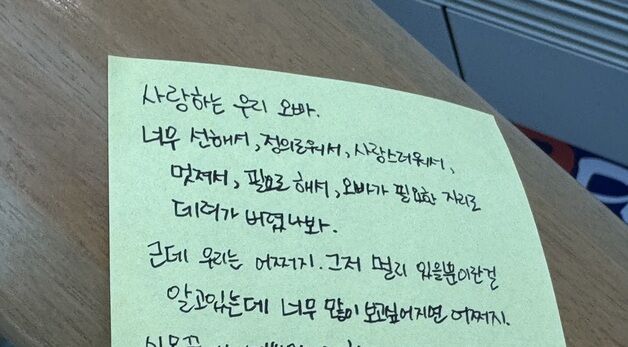 사랑하는 우리 오빠.
너무 선해서, 정의로워서, 사랑스러워서,
멋져서, 필요로 해서, 오빠가 필요한 자리로
데려가 버렸나봐.
근데 우리는 어쩌지. 그저 멀리 있을뿐이란걸
알고있는데 너무 많이 보고싶어지면 어쩌지.